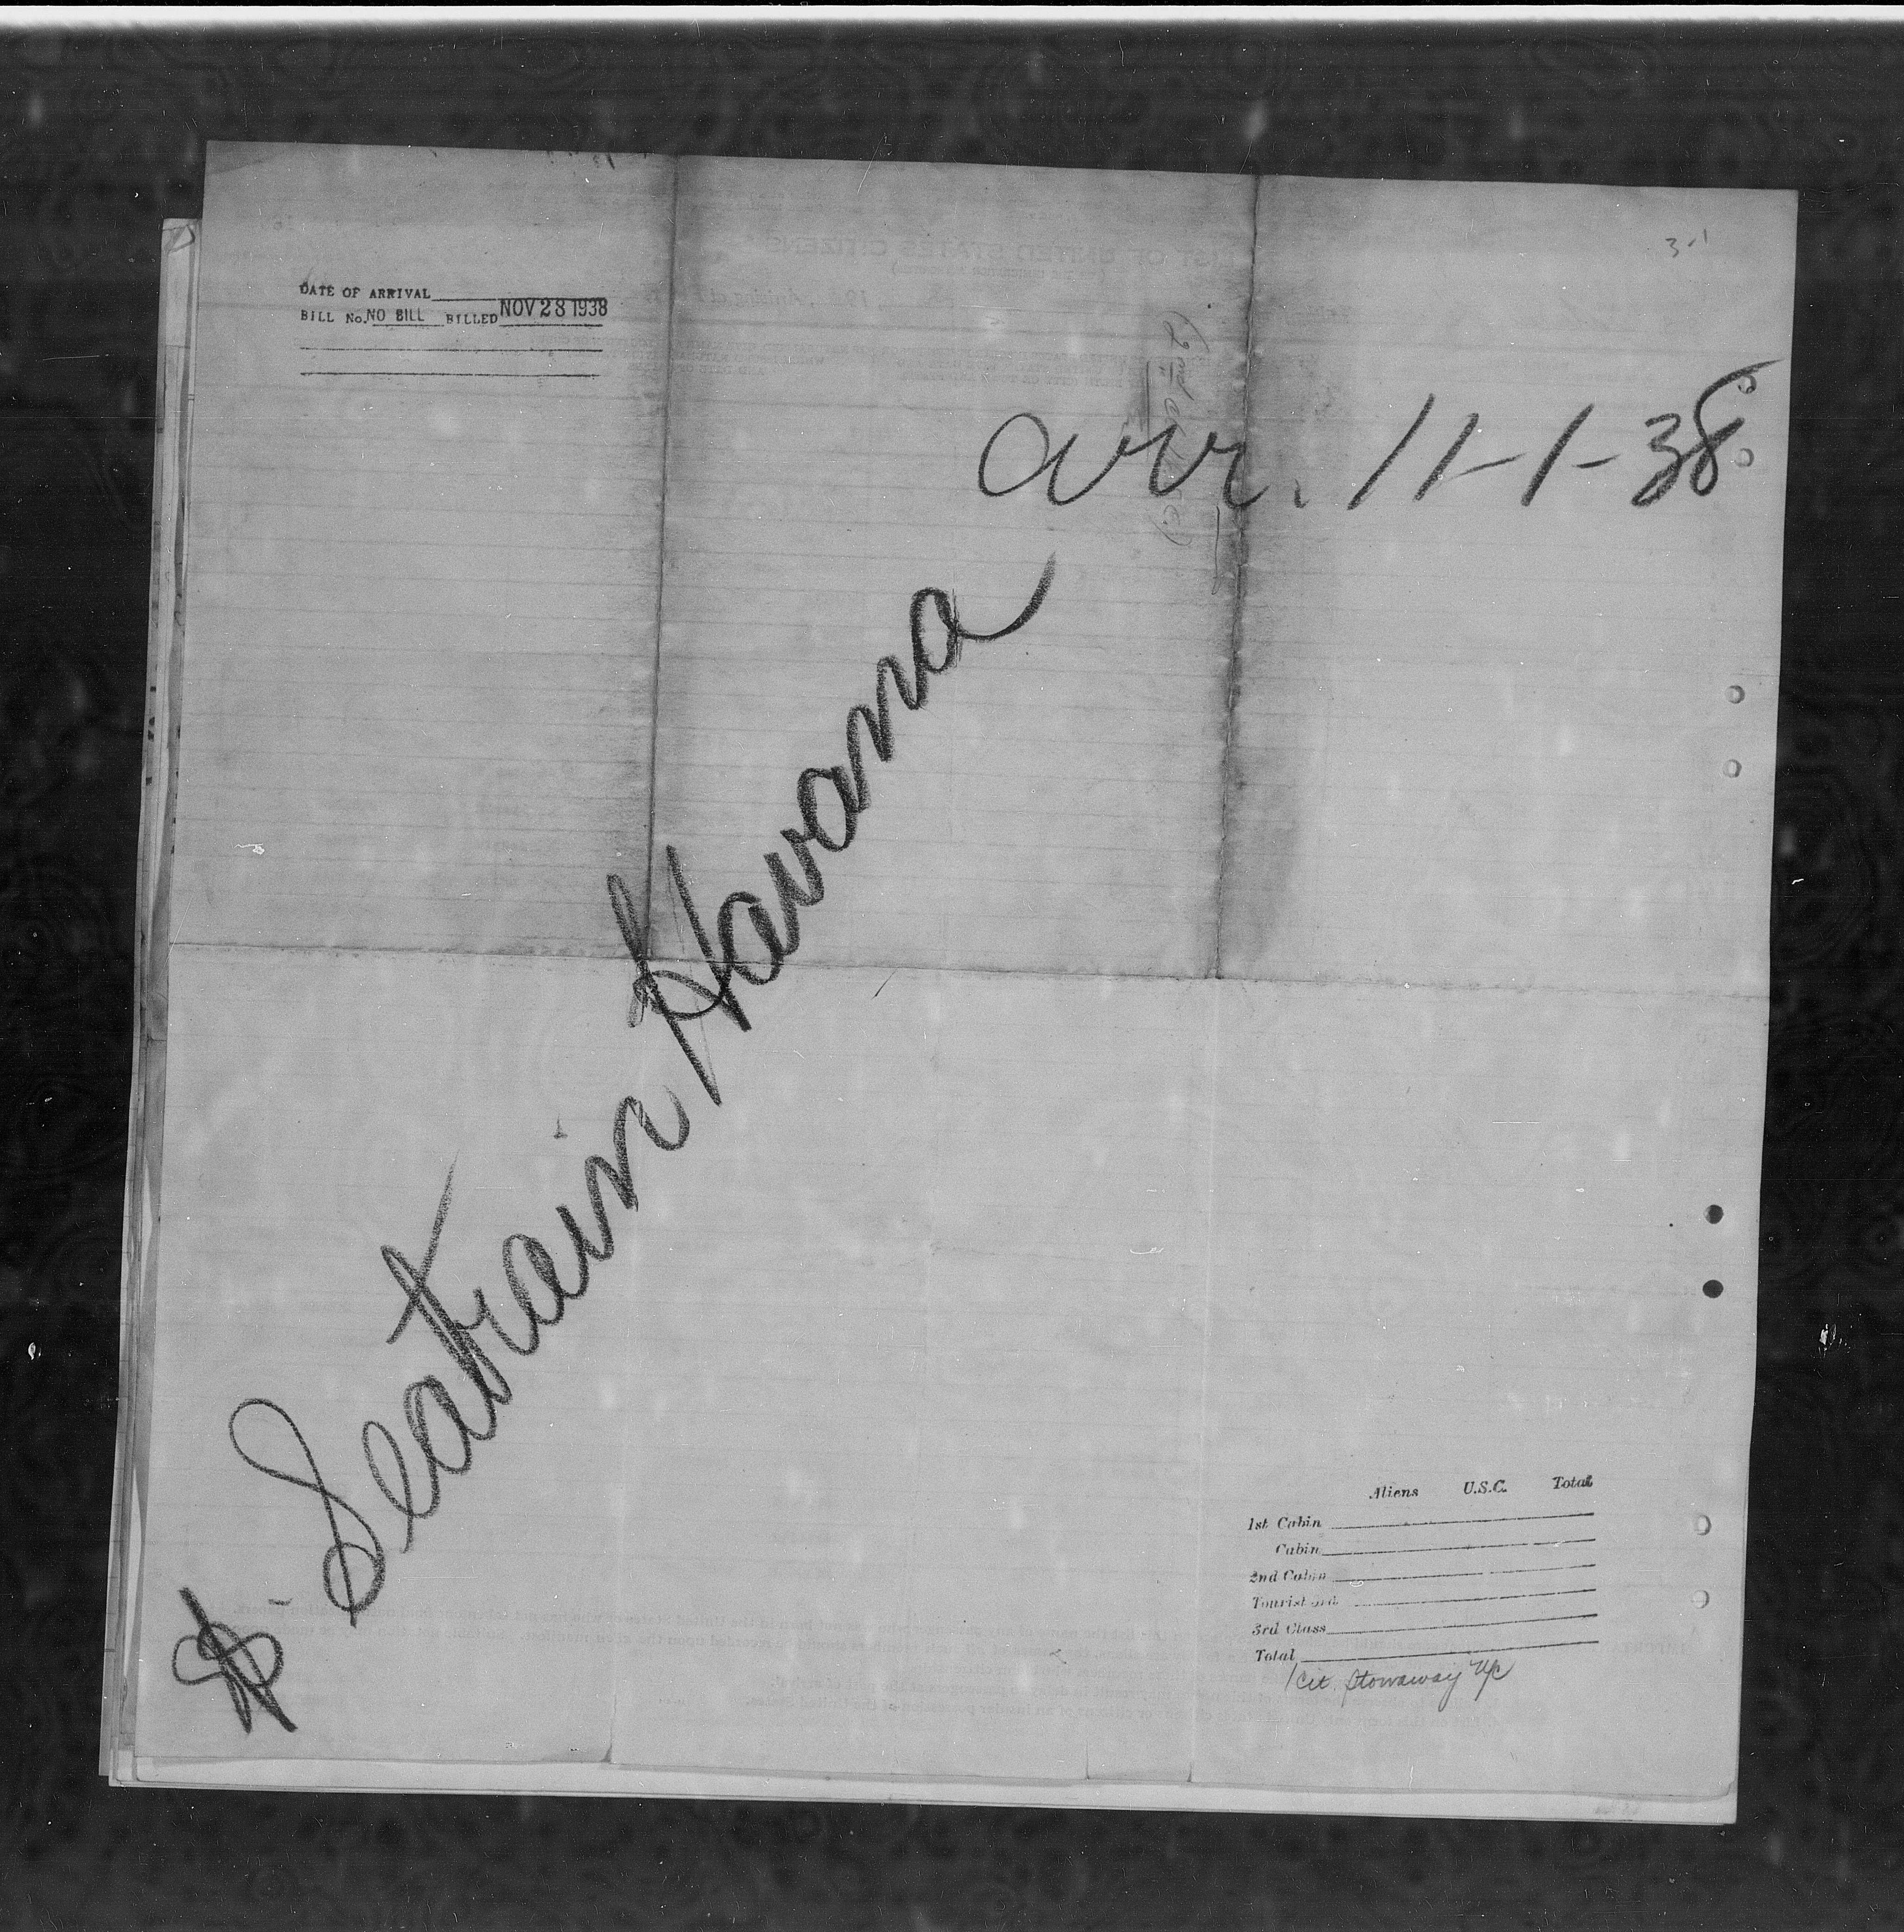 3-1
DATE OF ARRIVAL
BILL No. NO BILL BILLED NOV 28 1938
arr. 11-1-38
Seatrain Havana
Aliens U.S.C. Total
1st Cabin
Cabin
2nd Cabin
Tourist 3rd
3rd Class
Total
1 cit. stowaway